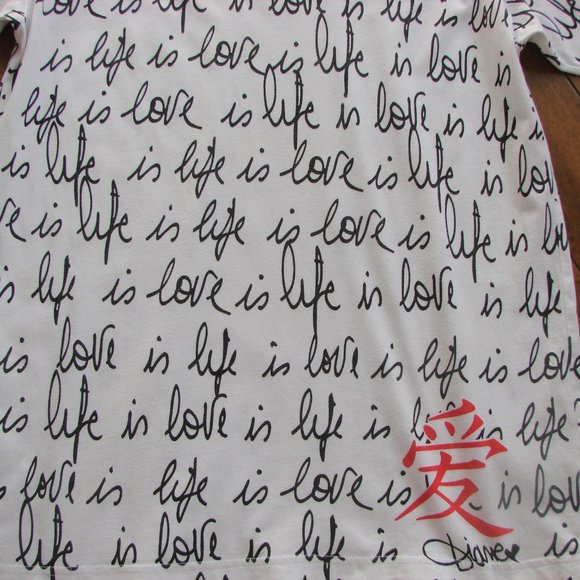 love is life is love is life is love
is life is love is life is love is
life is love is life is love is life is
is life is life is love is life is love
is life is life is love is life is
is life is love is life is love is life
is love is life is love is life is love
is life is love is life is life is life
is love is life is love is 爱 is love
life is love is life is Diane is